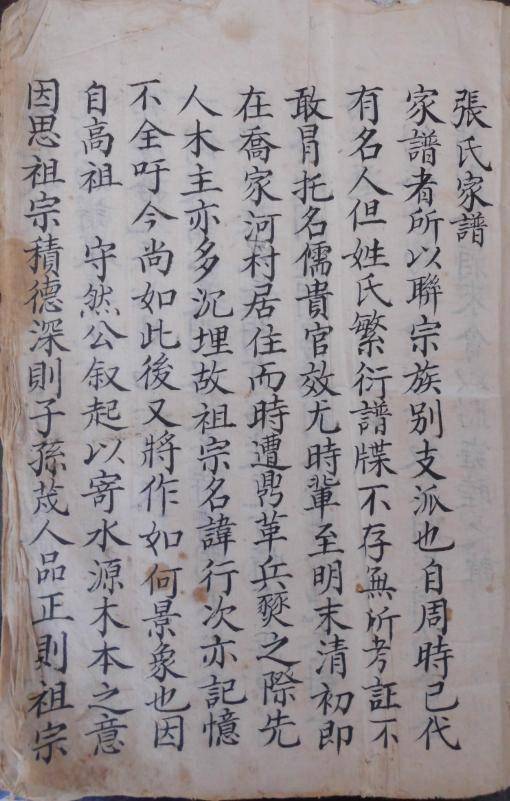 張氏家譜
家譜者所以聯宗族别支派也自周時已代
有名人但姓氏繁衍譜牒不存無所考証不
敢冐托名儒貴官效尤時輩至明末清初即
在喬家河村居住而時遭鼎革兵燹之際先
人木主亦多沉埋故祖宗名諱行次亦記憶
不全吁今尚如此後又將作如何景象也因
自高祖 守然公叙起以寄水源木本之意
因思祖宗積德深則子孫茂人品正則祖宗